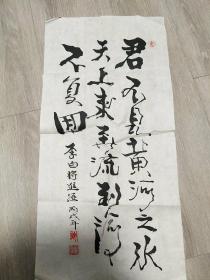 君不見黄河之水
天上来奔流到海
不复回
李白将進酒丙戌年